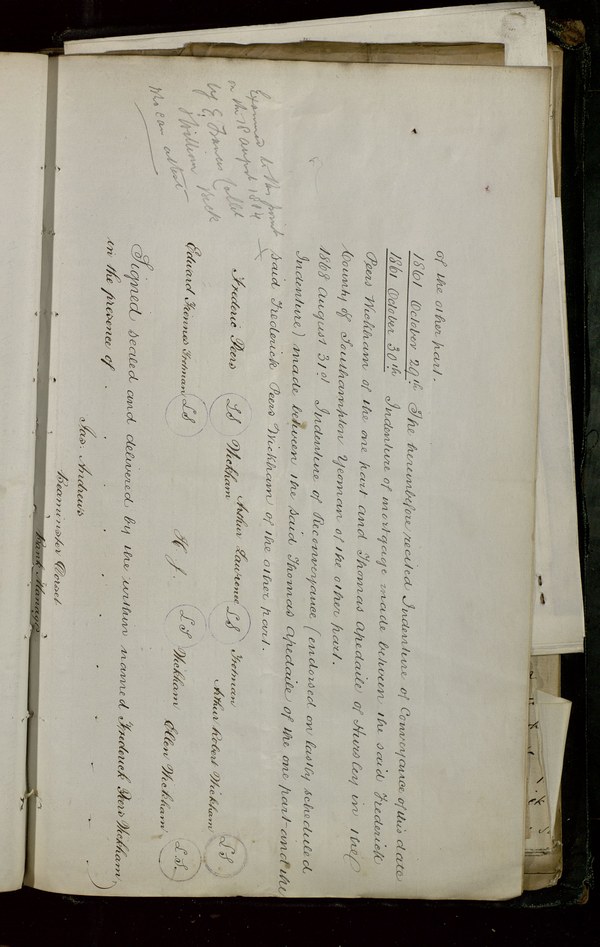 of the other part.
1861 October 29th The hereinbefore recited Indenture of Conveyance of this date
1861 October 30th Indenture of mortgage made between the said Frederick
Peers Wickham of the one part and Thomas Apedaile of Hursley in the
County of Southampton Yeoman of the other part.
1868 August 31st Indenture of Reconveyance (endorsed on lastly scheduled
Indenture) made between the said Thomas Apedaile of the one part and the
said Frederick Peers Wickham of the other part.
Examined to this point
on the 18 August 1914
by E. Francis
& William
Frederic Peers LS Wickham Arthur Lawrence LS Fretman Arthur Robert Wickham LS
Edward Francis Fretman LS H J. LS Wickham Ellen Wickham LS.
Signed sealed and delivered by the within named Frederick Peers Wickham
in the presence of
Jas. Andrews
Beaminster Dorset
Bank Manager